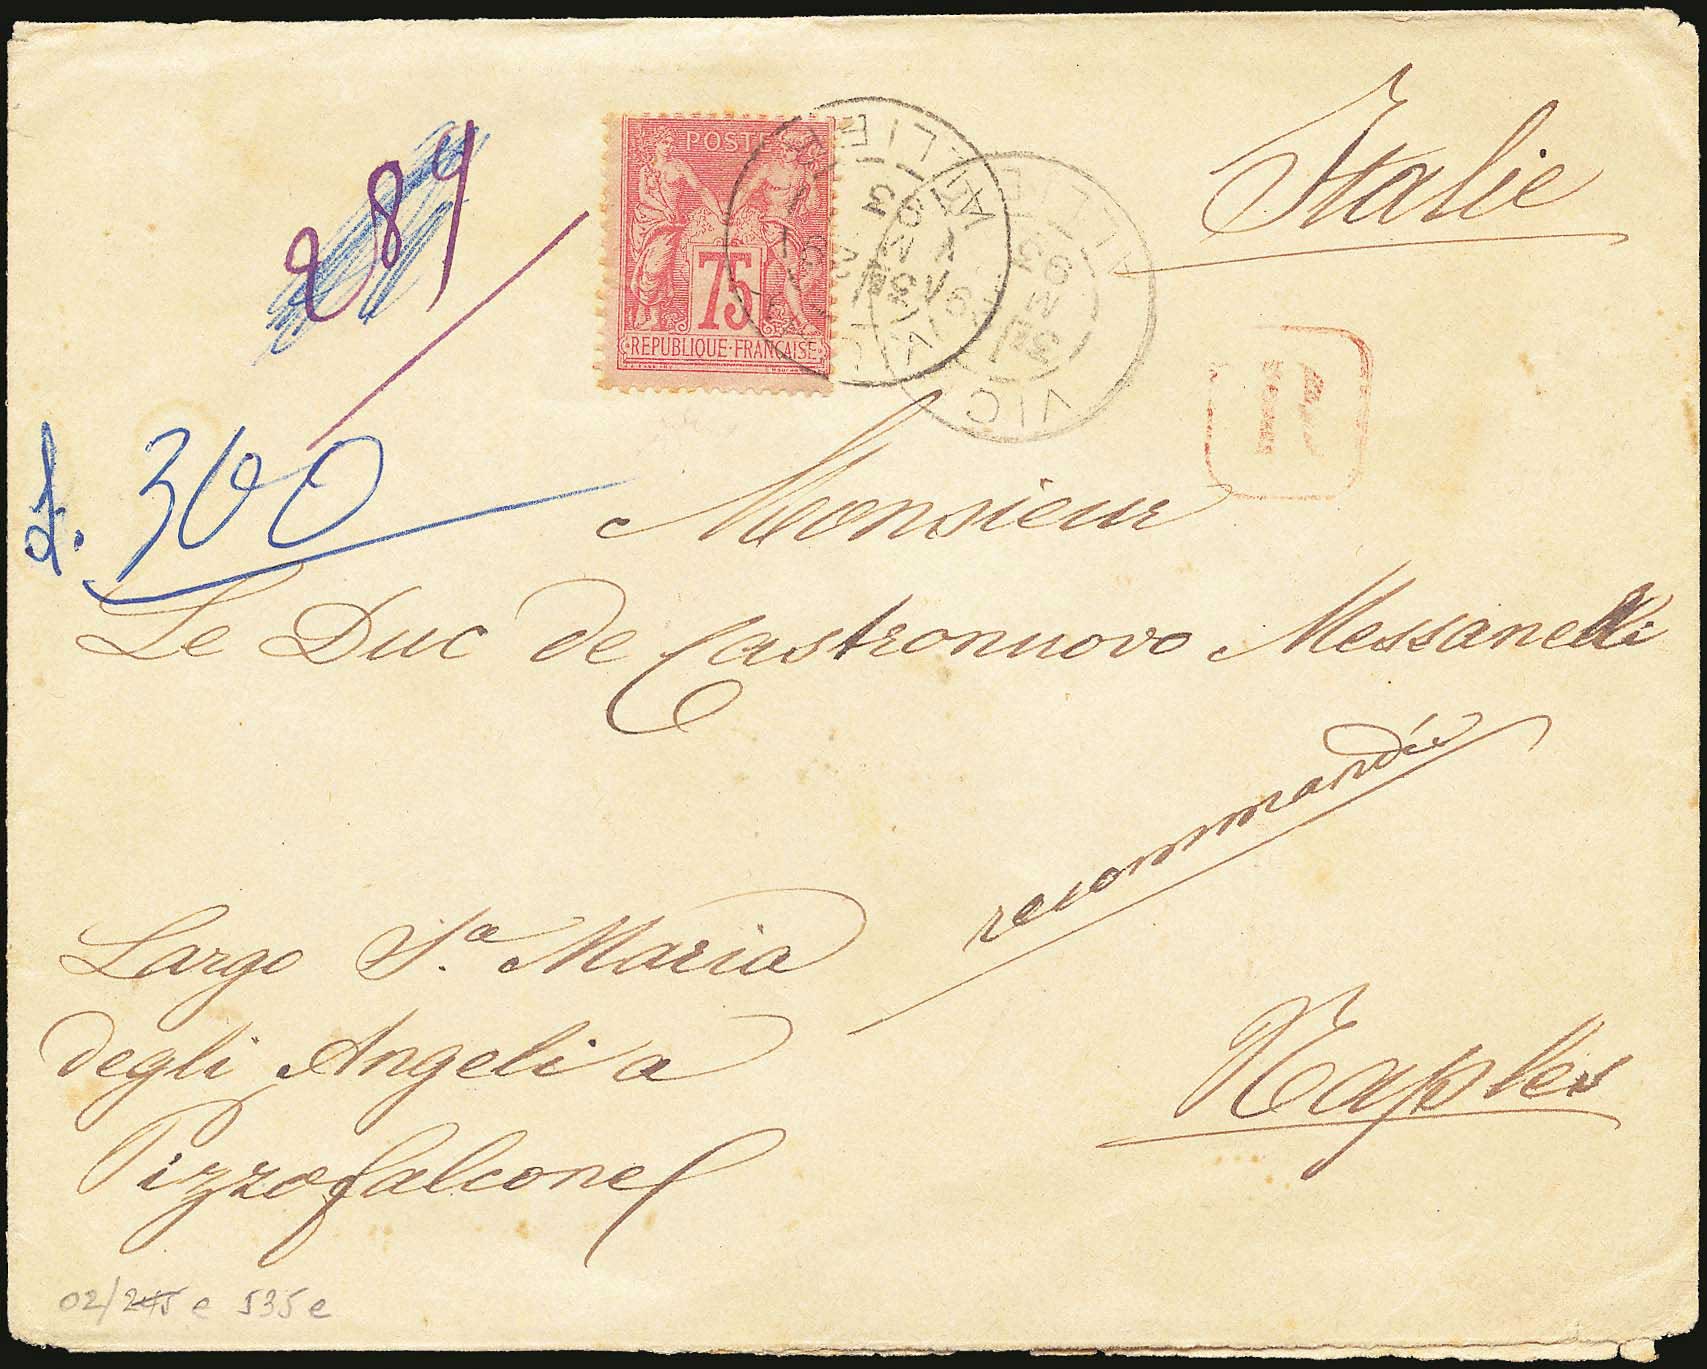 Italie
289
POSTE
75
REPUBLIQUE FRANÇAISE
R
d. 300
Monsieur
Le Duc de Castronuovo Messanelli
recommandée
Largo S.a Maria
degli Angeli a
Pizzofalcone
Naples
02/245 e 535 e